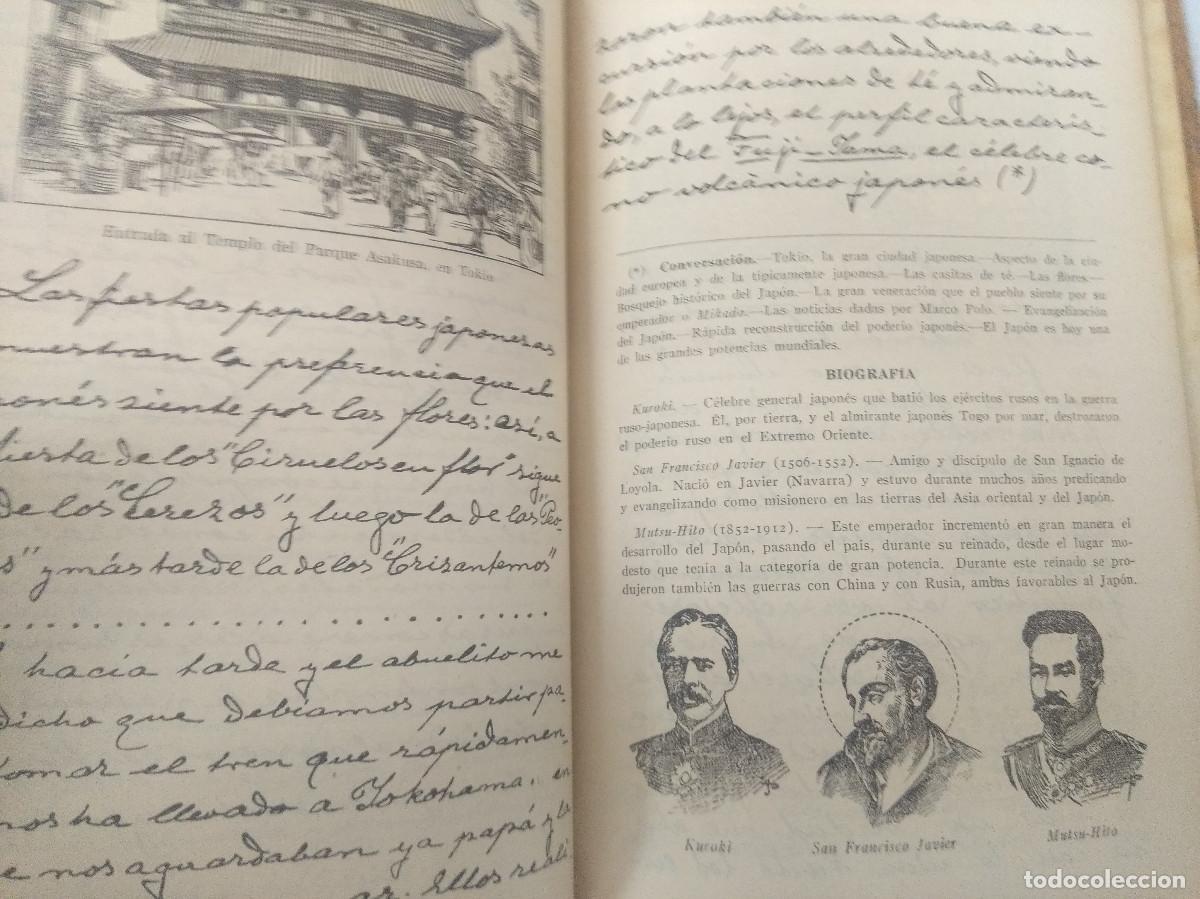 Entrada al Templo del Parque Asakusa, en Tokio
Las fiestas populares japonesas
muestran la preferencia que el
ponés siente por las flores: así, a
fiesta de los "Ciruelos en flor" sigue
de los "Cerezos" y luego la de las "Peo-
s" y más tarde la de los "Crisantemos"
. . . . . . . . . . . . . . . . . . . . . . . . .
hacía tarde y el abuelito me
dicho que debíamos partir pa-
tomar el tren que rápidamen-
nos ha llevado a Yokohama, en
e nos aguardaban ya papá y la
ar. Ellos reali
zaron también una buena ex-
cursión por los alrededores, viendo
las plantaciones de té y admiran-
do, a lo lejos, el perfil caracterís-
tico del Fuji-Yama, el célebre co-
no volcànico japonés (*)
(*) Conversación.—Tokio, la gran ciudad japonesa.—Aspecto de la ciu-
dad europea y de la típicamente japonesa.—Las casitas de té.—Las flores.—
Bosquejo histórico del Japón.—La gran veneración que el pueblo siente por su
emperador o Mikado.—Las noticias dadas por Marco Polo. — Evangelización
del Japón.—Rápida reconstrucción del poderío japonés.—El Japón es hoy una
de las grandes potencias mundiales.
BIOGRAFÍA
Kuroki. — Célebre general japonés que batió los ejércitos rusos en la guerra
ruso-japonesa. Él, por tierra, y el almirante japonés Togo por mar, destrozaron
el poderío ruso en el Extremo Oriente.
San Francisco Javier (1506-1552). — Amigo y discípulo de San Ignacio de
Loyola. Nació en Javier (Navarra) y estuvo durante muchos años predicando
y evangelizando como misionero en las tierras del Asia oriental y del Japón.
Mutsu-Hito (1852-1912). — Este emperador incrementó en gran manera el
desarrollo del Japón, pasando el país, durante su reinado, desde el lugar mo-
desto que tenía a la categoría de gran potencia. Durante este reinado se pro-
dujeron también las guerras con China y con Rusia, ambas favorables al Japón.
Kuroki
San Francisco Javier
Mutsu-Hito
todocoleccion